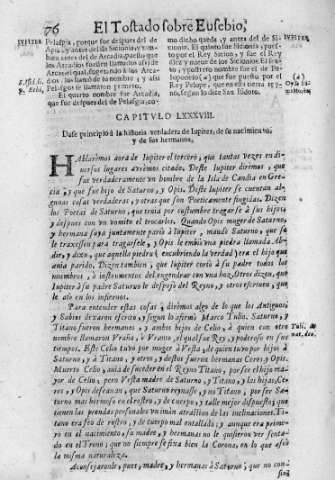 76 El Tostado sobre Eusebio,
IVPITER Pelasgia, porque fue despues del de
Apia, y antes del de Sicionia, y tam-
bien antes del de Arcadia, puesto que
los Arcadios fuessen llamados assi de
Arcas, el qual, sugetando à los Arca-
dios, los llamò de su nombre, y assi
Pelasgos se llamaron primero.
El quarto nombre fue de
que fue despues del de Pelasgia, co-
mo dicho queda, y antes del de Si-
cionia. El quinto fue Sicionia, pues-
to por el Rey Sicion, y fue el Rey
diez y nueve de los Sicionios. El sex-
to, y postrero nombre fue el de Pe-
loponenso (a) que fue puesto por el
Rey Pelope, que en esta tierra rey-
nò, segun lo dize San Isidoro.
IVPITER,
(a)
CAPITVLO LXXXVIII.
Dase principio à la historia verdadera de Iupiter, de su nacimiento,
y de sus hermanos.
HAblaremos aora de Iupiter el tercero, que tantas vezes en di-
versos lugares avemos citado. Deste Iupiter, diremos, que
fue verdaderamente vn hombre de la Isla de Candia en Gre-
cia, y que fue hijo de Saturno, y Opis. Deste Iupiter se cuentan al-
gunas cosas verdaderas, y otras que son Poeticamente fingidas. Dizen
los Poetas de Saturno, que tenia por costumbre tragarse à sus hijos
y despues con vn vomito el trocarlos. Quando Opis muger de Saturno,
y hermana suya juntamente pariò à Iupiter, mandò Saturno, que se
le traxessen para tragarsele, y Opis le embiò vna piedra llamada Abi-
dir, y dixo, que aquella piedra (encubriendo la verdad) era el hijo que
avia parido. Dizen tambien, que Iupiter cortò à su padre todos los
miembros, è instrumentos del engendrar con vna hoz. Otros dizen, que
Iupiter à su padre Saturno lo despojò del Reyno, y otros escriven, que
le atò en los infiernos.
Para entender estas cosas, diremos algo de lo que los Antiguos,
y Sabios dexaron escrito, y segun lo afirma Marco Tulio. Saturno,
y Titano fueron hermanos, y ambos hijos de Celio, à quien con otro
nombre llamaron Vranio, y Vrano, el qual fue Rey, y poderoso en sus
tiempos. Este Celio tuvo por muger à Vesta, de quien tuvo por hijos à
Saturno, y à Titano, y otros, y destos fueron hermanas Ceres, y Opis.
Muerto Celio, avia de suceder en el Reyno Titano, por ser el hijo ma-
yor de Celio, pero Vesta madre de Saturno, y Titano, y las hijas, Ce-
res, y Opis desearon, que Saturno reynasse, y no Titano, por ser Satur-
no mas hermoso en el rostro, y de cuerpo, y talle mejor dispuesto; que
tienen las prendas personales vn iman atractivo de las inclinaciones. Ti-
tano era feo de rostro, y de cuerpo mal entallado; y aunque era prime-
ro en el nacimiento, su madre, y hermanas no le quisieron ver senta-
do en el Trono; que no siempre se fixa bien la Corona, en lo que assiò
la misma naturaleza.
Aconsejaronle, pues, madre, y hermanas à Saturno, que no con-